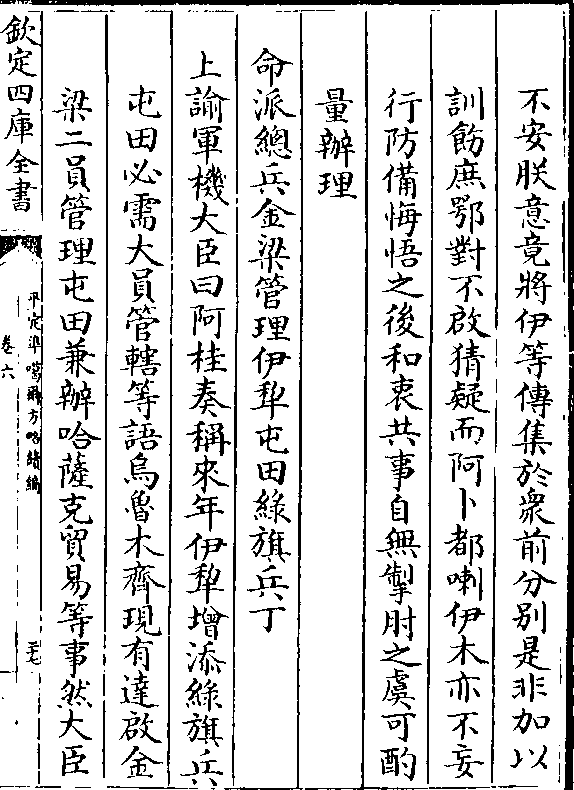 不安朕意竟將伊等傳集於衆前分别是非加以
訓飭庶鄂對不啟猜疑而阿卜都喇伊木亦不妄
行防備悔悟之後和衷共事自無掣肘之虞可酌
量辦理
命派總兵金梁管理伊犂屯田綠旗兵丁
上諭軍機大臣曰阿桂奏稱來年伊犂增添綠旗兵
屯田必需大員管轄等語烏魯木齊現有達啟金
梁二員管理屯田兼辦哈薩克貿易等事然大臣
欽定四庫全書
平定準噶爾方略續編
卷六